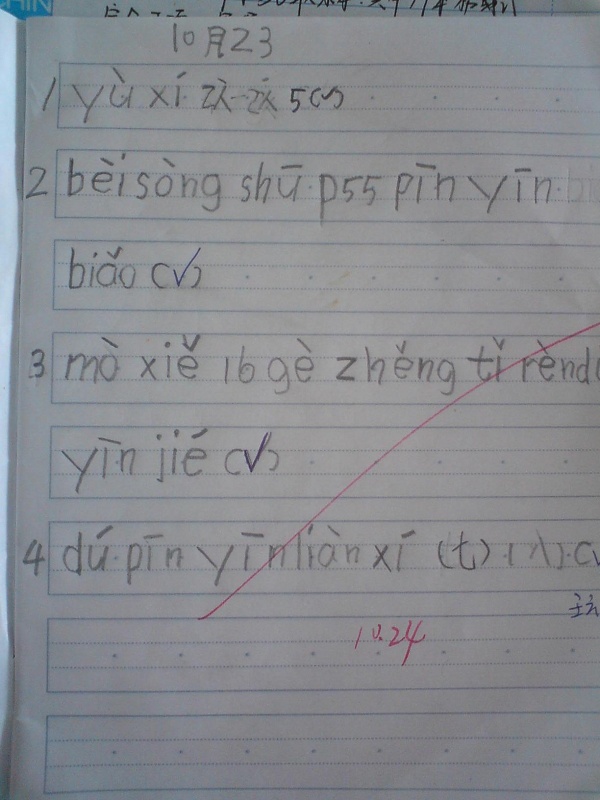 10月23
1 yù xí
2 bèi sòng shū p55 pīn yīn
biǎo (✓)
3 mò xiě 16 gè zhěng tǐ rènd
yīn jié (✓)
4 dú pīn yīn liàn xí (七)(八)
10.24